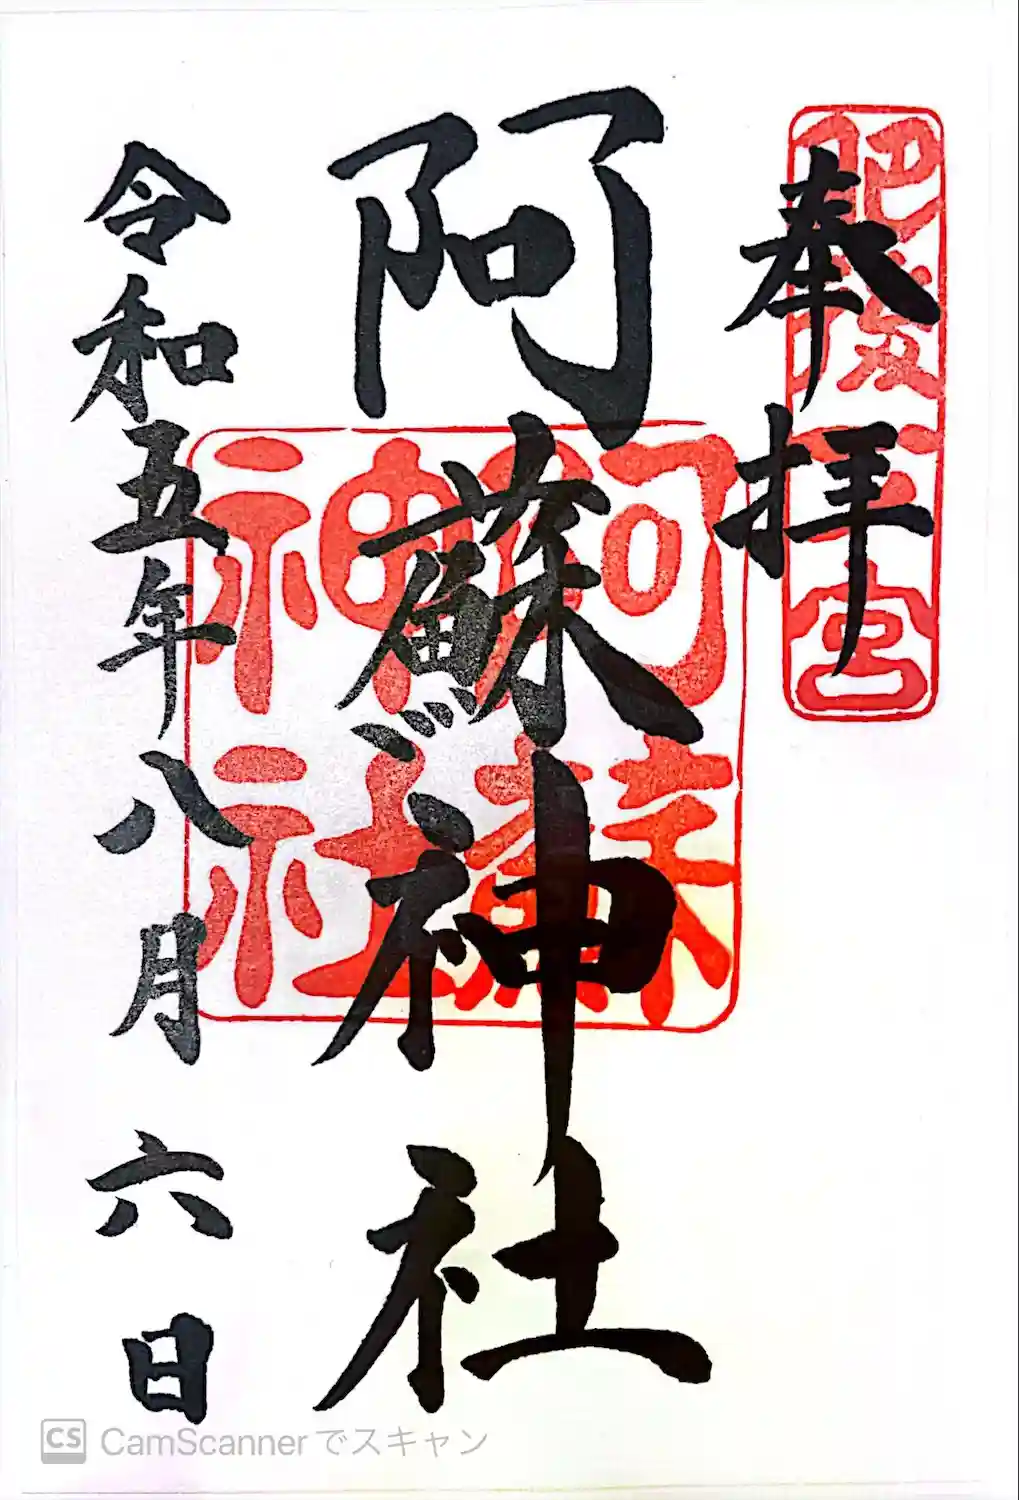 奉拝
肥後一宮
阿蘇神社
阿蘇神社
令和五年八月六日
CS CamScannerでスキャン